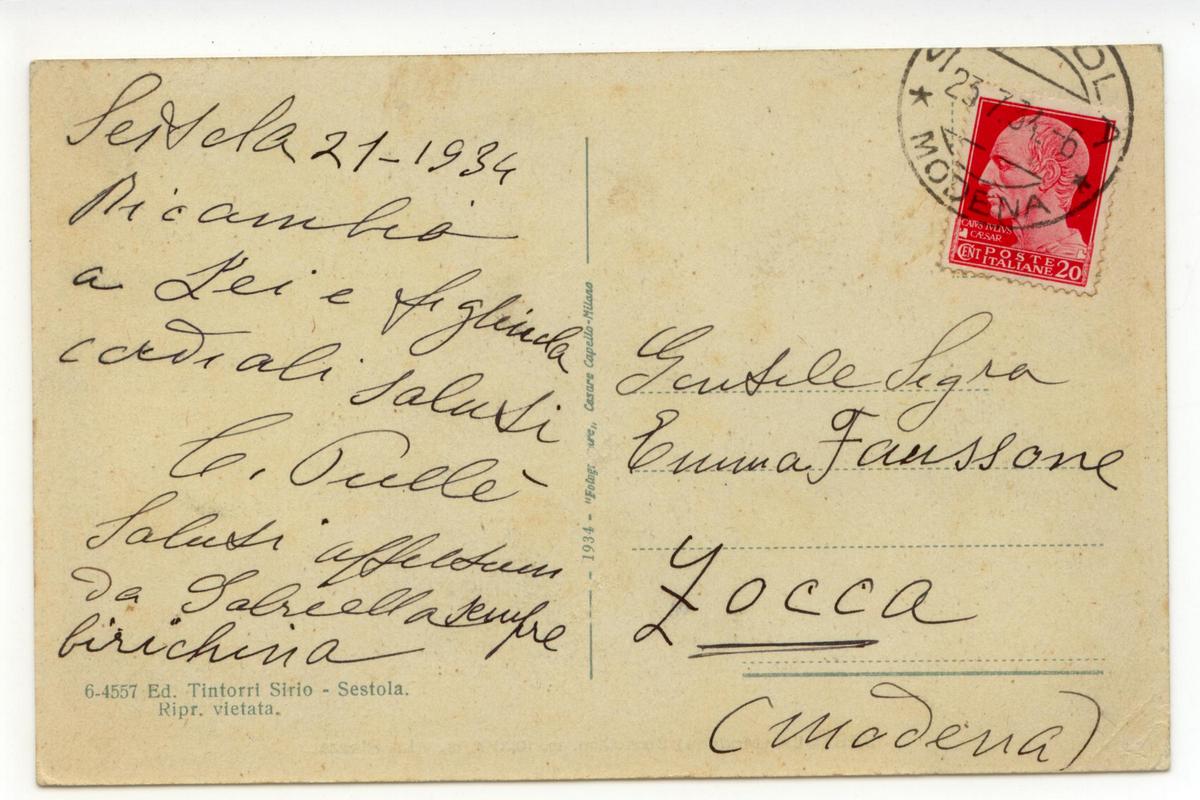 Sestola 21-1934
Ricambio
a Lei e figliuola
cordiali saluti
C. Pullè
Saluti affettuosi
da Gabriella sempre
birichina
6-4557 Ed. Tintorri Sirio - Sestola.
Ripr. vietata.
1934 - "Fotogr ure„ Cesare Capello-Milano
23.7.34.-6
MODENA
CAIVS IVLIVS
CÆSAR
CENT POSTE
ITALIANE 20
Gentile Sigra
Emma Faussone
Zocca
(Modena)